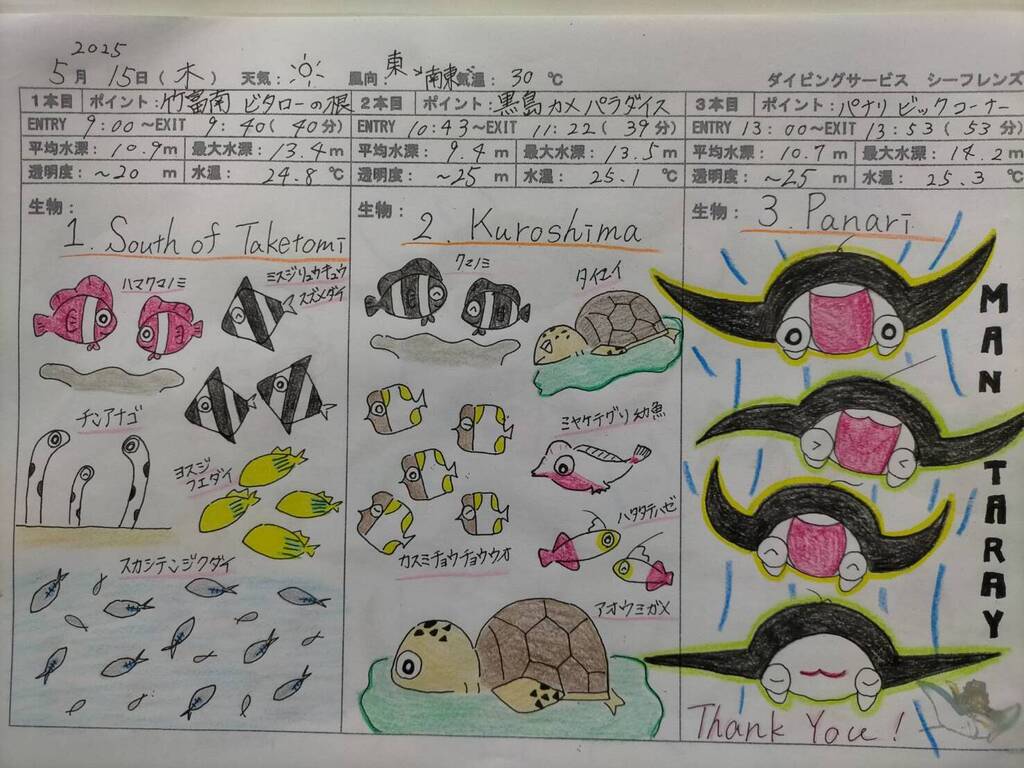 2025
5月 15日(木) 天気: 風向:東、南東 気温: 30 ℃ ダイビングサービス シーフレンズ
1本目 ポイント:竹富南 ビタローの根 2本目 ポイント:黒島カメパラダイス 3本目 ポイント:パナリ ビックコーナー
ENTRY 9:00~EXIT 9:40(40分) ENTRY 10:43~EXIT 11:22(39分) ENTRY 13:00~EXIT 13:53(53分)
平均水深: 10.9m 最大水深: 13.4m 平均水深: 9.4m 最大水深: 13.5m 平均水深: 10.7m 最大水深: 14.2m
透明度: ~20 m 水温: 24.8℃ 透明度: ~25 m 水温: 25.1℃ 透明度: ~25 m 水温: 25.3℃
生物:
1. South of Taketomi
ハマクマノミ
ミスジリュウキュウ
スズメダイ
チンアナゴ
ヨスジ
フエダイ
スカシテンジクダイ
生物:
2. Kuroshima
クマノミ
タイマイ
ミヤケテグリ幼魚
カスミチョウチョウウオ
ハタタテハゼ
アオウミガメ
生物:
3. Panari
MAN TARAY
Thank You!